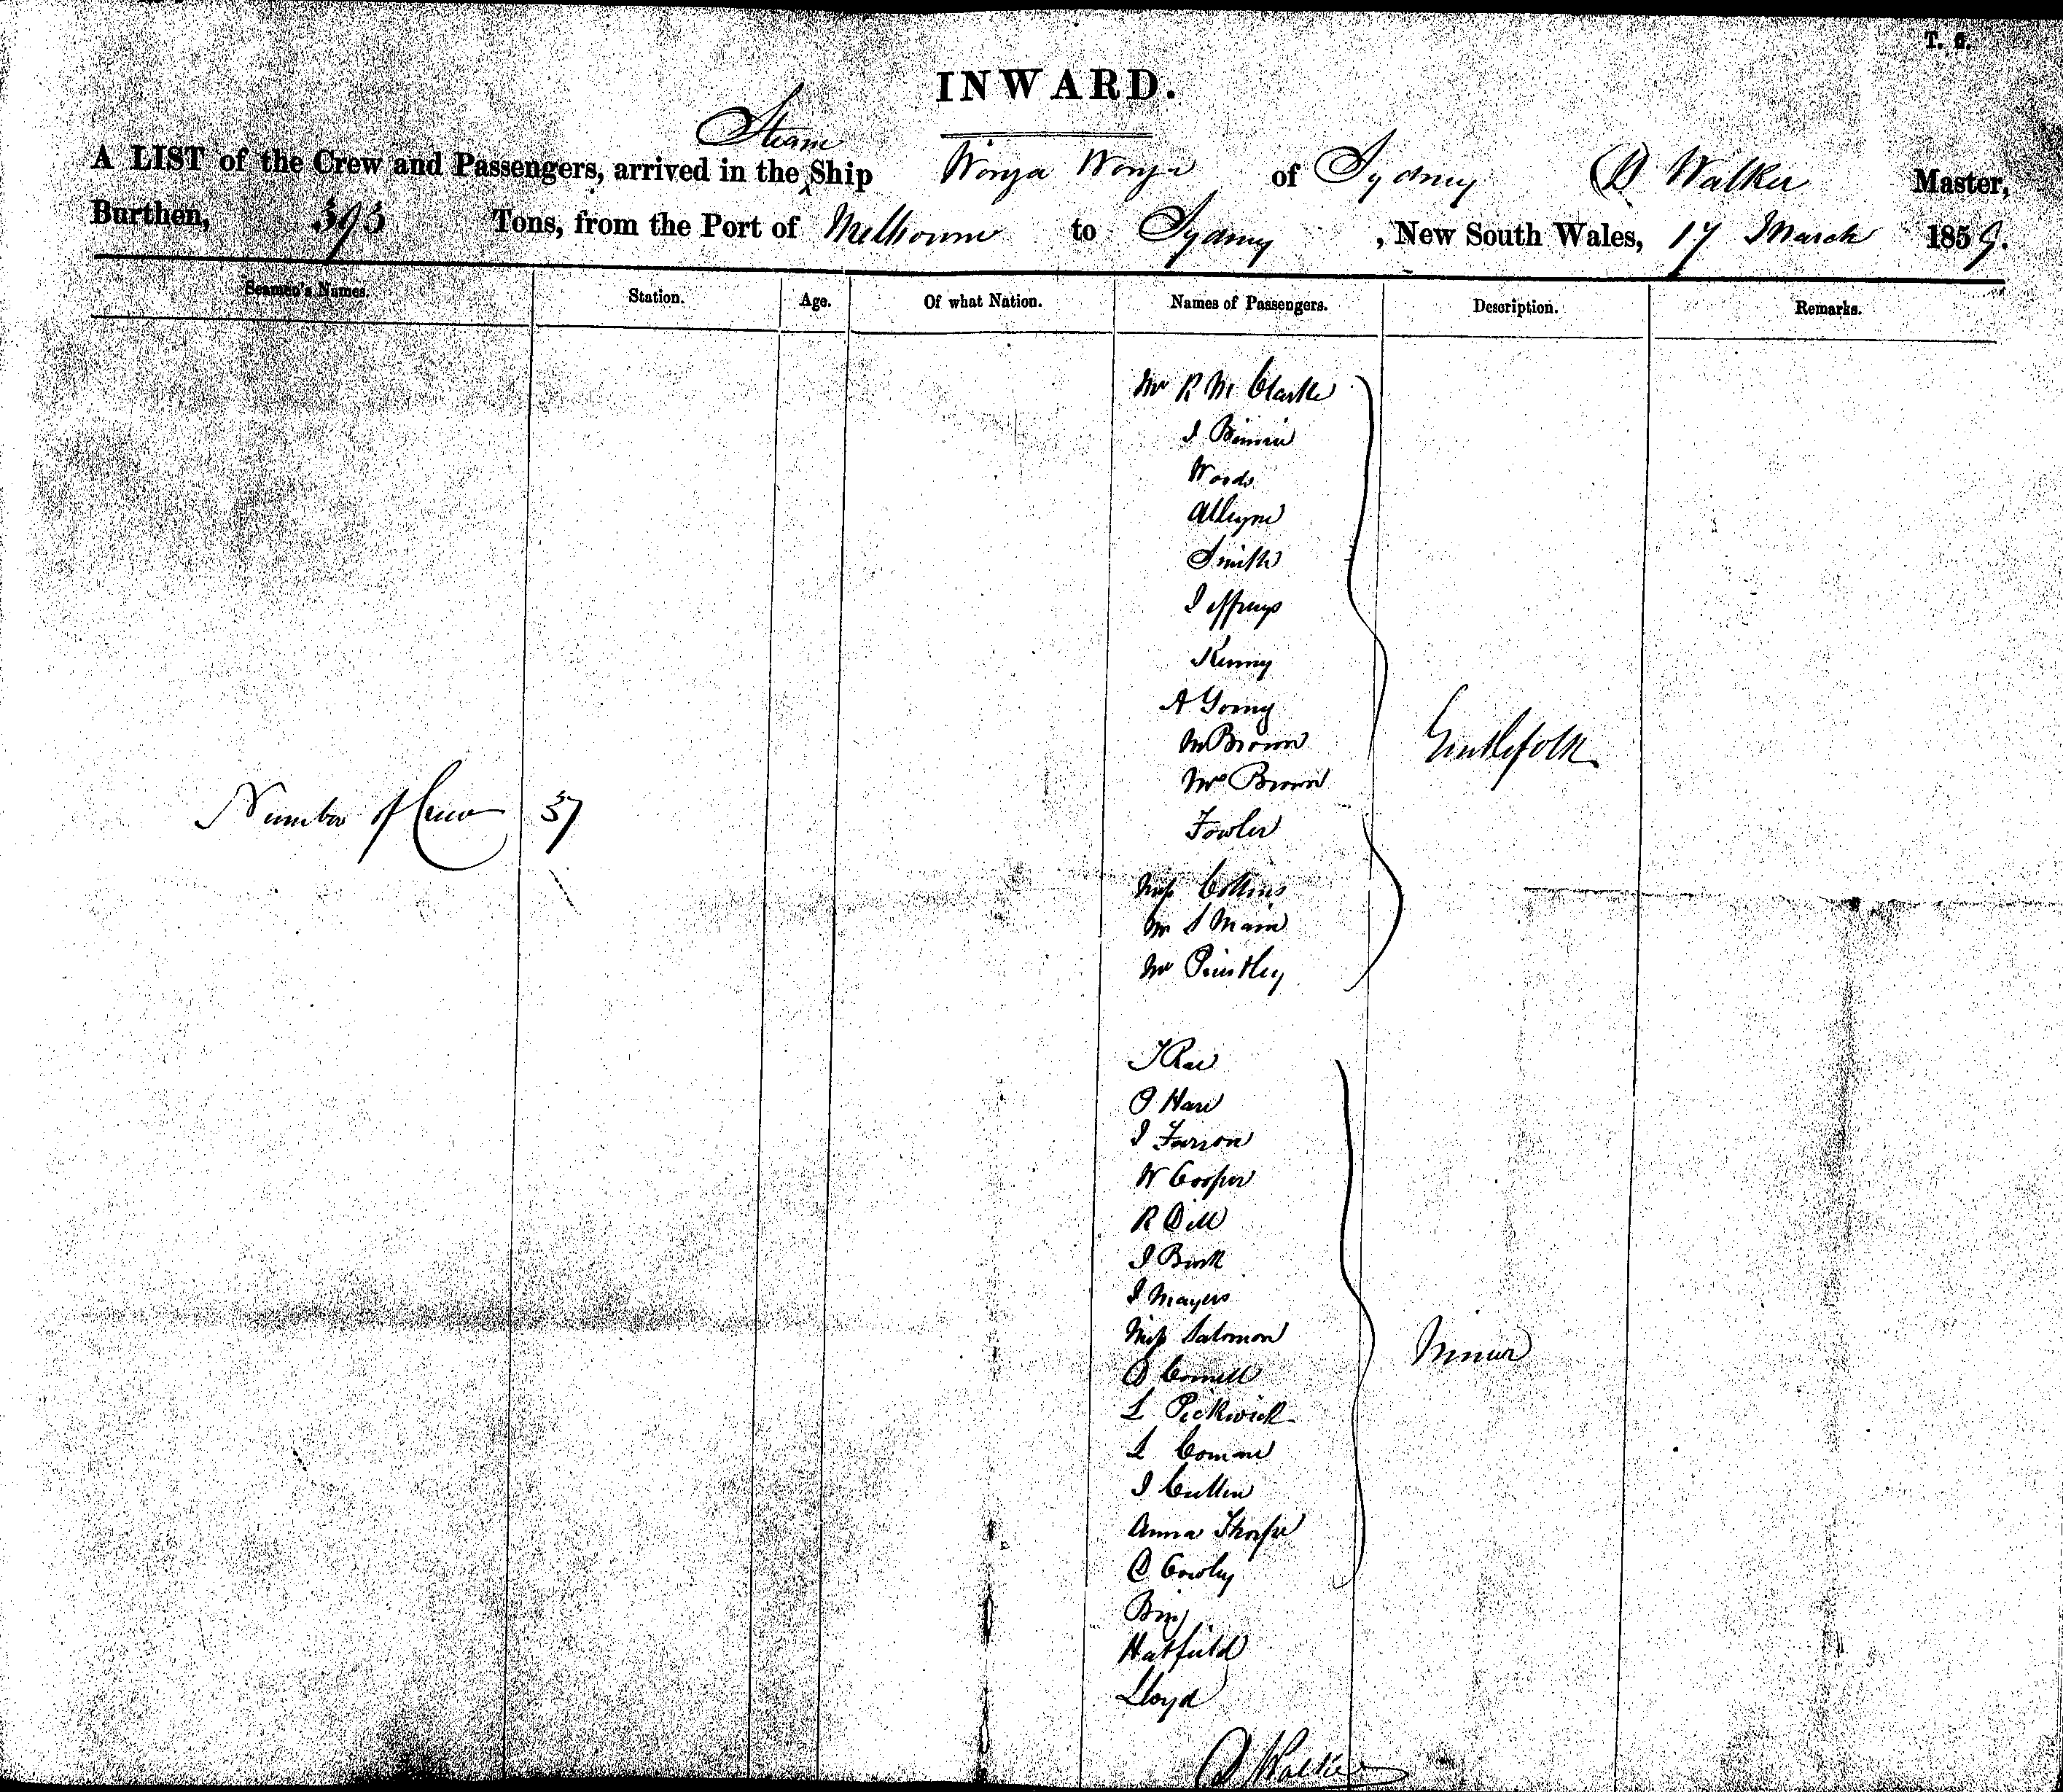 T. 6.
INWARD.
Steam
A LIST of the Crew and Passengers, arrived in the Ship Wonga Wonga of Sydney D Walker Master,
Burthen, 393 Tons, from the Port of Melbourne to Sydney, New South Wales, 17 March 1859.
Seamen's Names. Station. Age. Of what Nation. Names of Passengers. Description. Remarks.
Mr R M Clarke
J Binnie
Woods
Alleyne
Smith
Jeffreys
Kenny
A Young
M Brown
Gentlefolk
Mrs Brown
Number of Crew 37
Fowler
Miss Collins
Mr S Main
Mr Priestley
J Rae
P Hare
J Farron
W Cooper
R Dill
J Birk
J Mayers
Miss Salomon
Miner
D Connell
L Pickwick
L
J Cullen
Anna Thorpe
D Cowley
Hatfield
Lloyd
D Walker